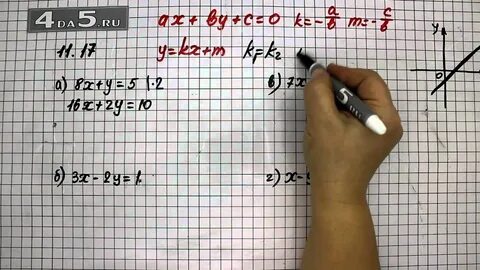 4ДА5.RU
ax + by + c = 0 k = -a/b m = -c/b
11.17 y = kx + m k₁ = k₂
а) 8x + y = 5 |·2 в) 7x
16x + 2y = 10
б) 3x - 2y = 1. г) x -
y
0
5